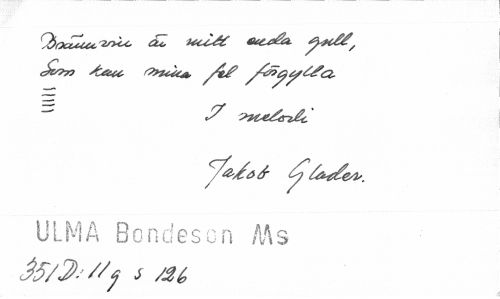 Brännvin är mitt enda gull,
Som kan mina fel förgylla
I melodi
Jakob Glader.
ULMA Bondeson Ms
351 D: 11 g s 126